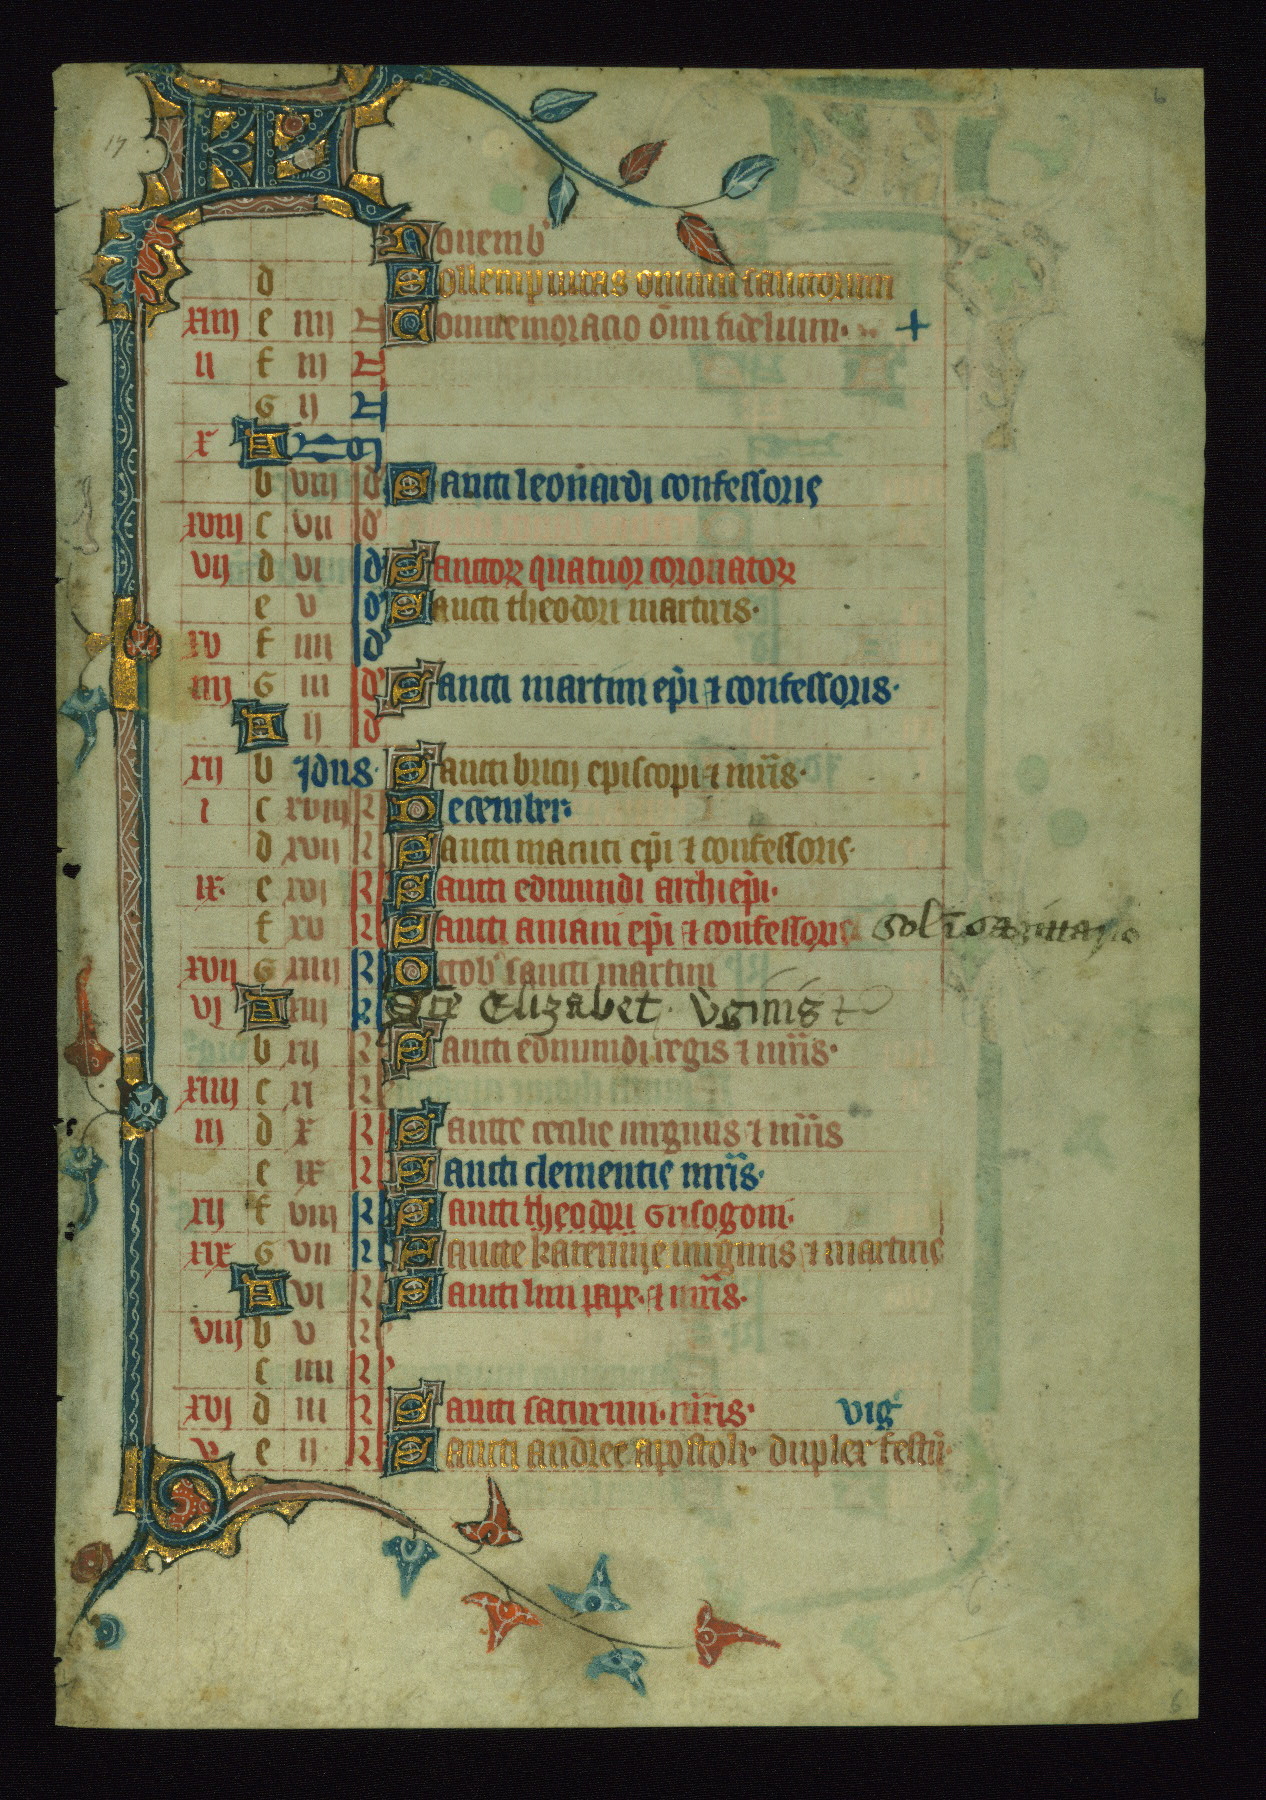 17
6
Nouemb'
d Sollempnitas omnium sanctorum
xiii e iiii N Commemoracio om̄i fidelium. +
ii f iii N
G ii N
x A
b viii d' Sancti leonardi confessoris
xviii c vii d'
vii d vi d' Sanctor quatuor coronator
e v d' Sancti theodori martiris.
xv f iiii d'
iiii G iii d' Sancti martini ep̄i & confessoris.
A ii d'
xii b Idus. Sancti bricij episcopi & mr̄is.
i c xviii R December.
d xvii R Sancti macuti ep̄i & confessoris.
ix. e xvi R Sancti edmundi archiep̄i.
f xv R Sancti aniani ep̄i & confessoris Sol ī sagittario
xvii G xiiii R Octob' sancti martini
vi A xiii R Scē Elizabet. v̄ginis
b xii R Sancti edmundi regis & mr̄is.
xiiii c xi R
iii d x R Sancte cecilie uirginis & mr̄is
e ix R Sancti clementis mr̄is.
xii f viii R Sancti theodori Grisogoni.
xix G vii R Sancte katerine uirginis & martiris
A vi R Sancti lini pape. & mr̄is.
viii b v R
c iiii R
xvi d iii R Sancti saturnini. mr̄is. vig'
v e ii. R Sancti andree apostoli. duplex festū.
6